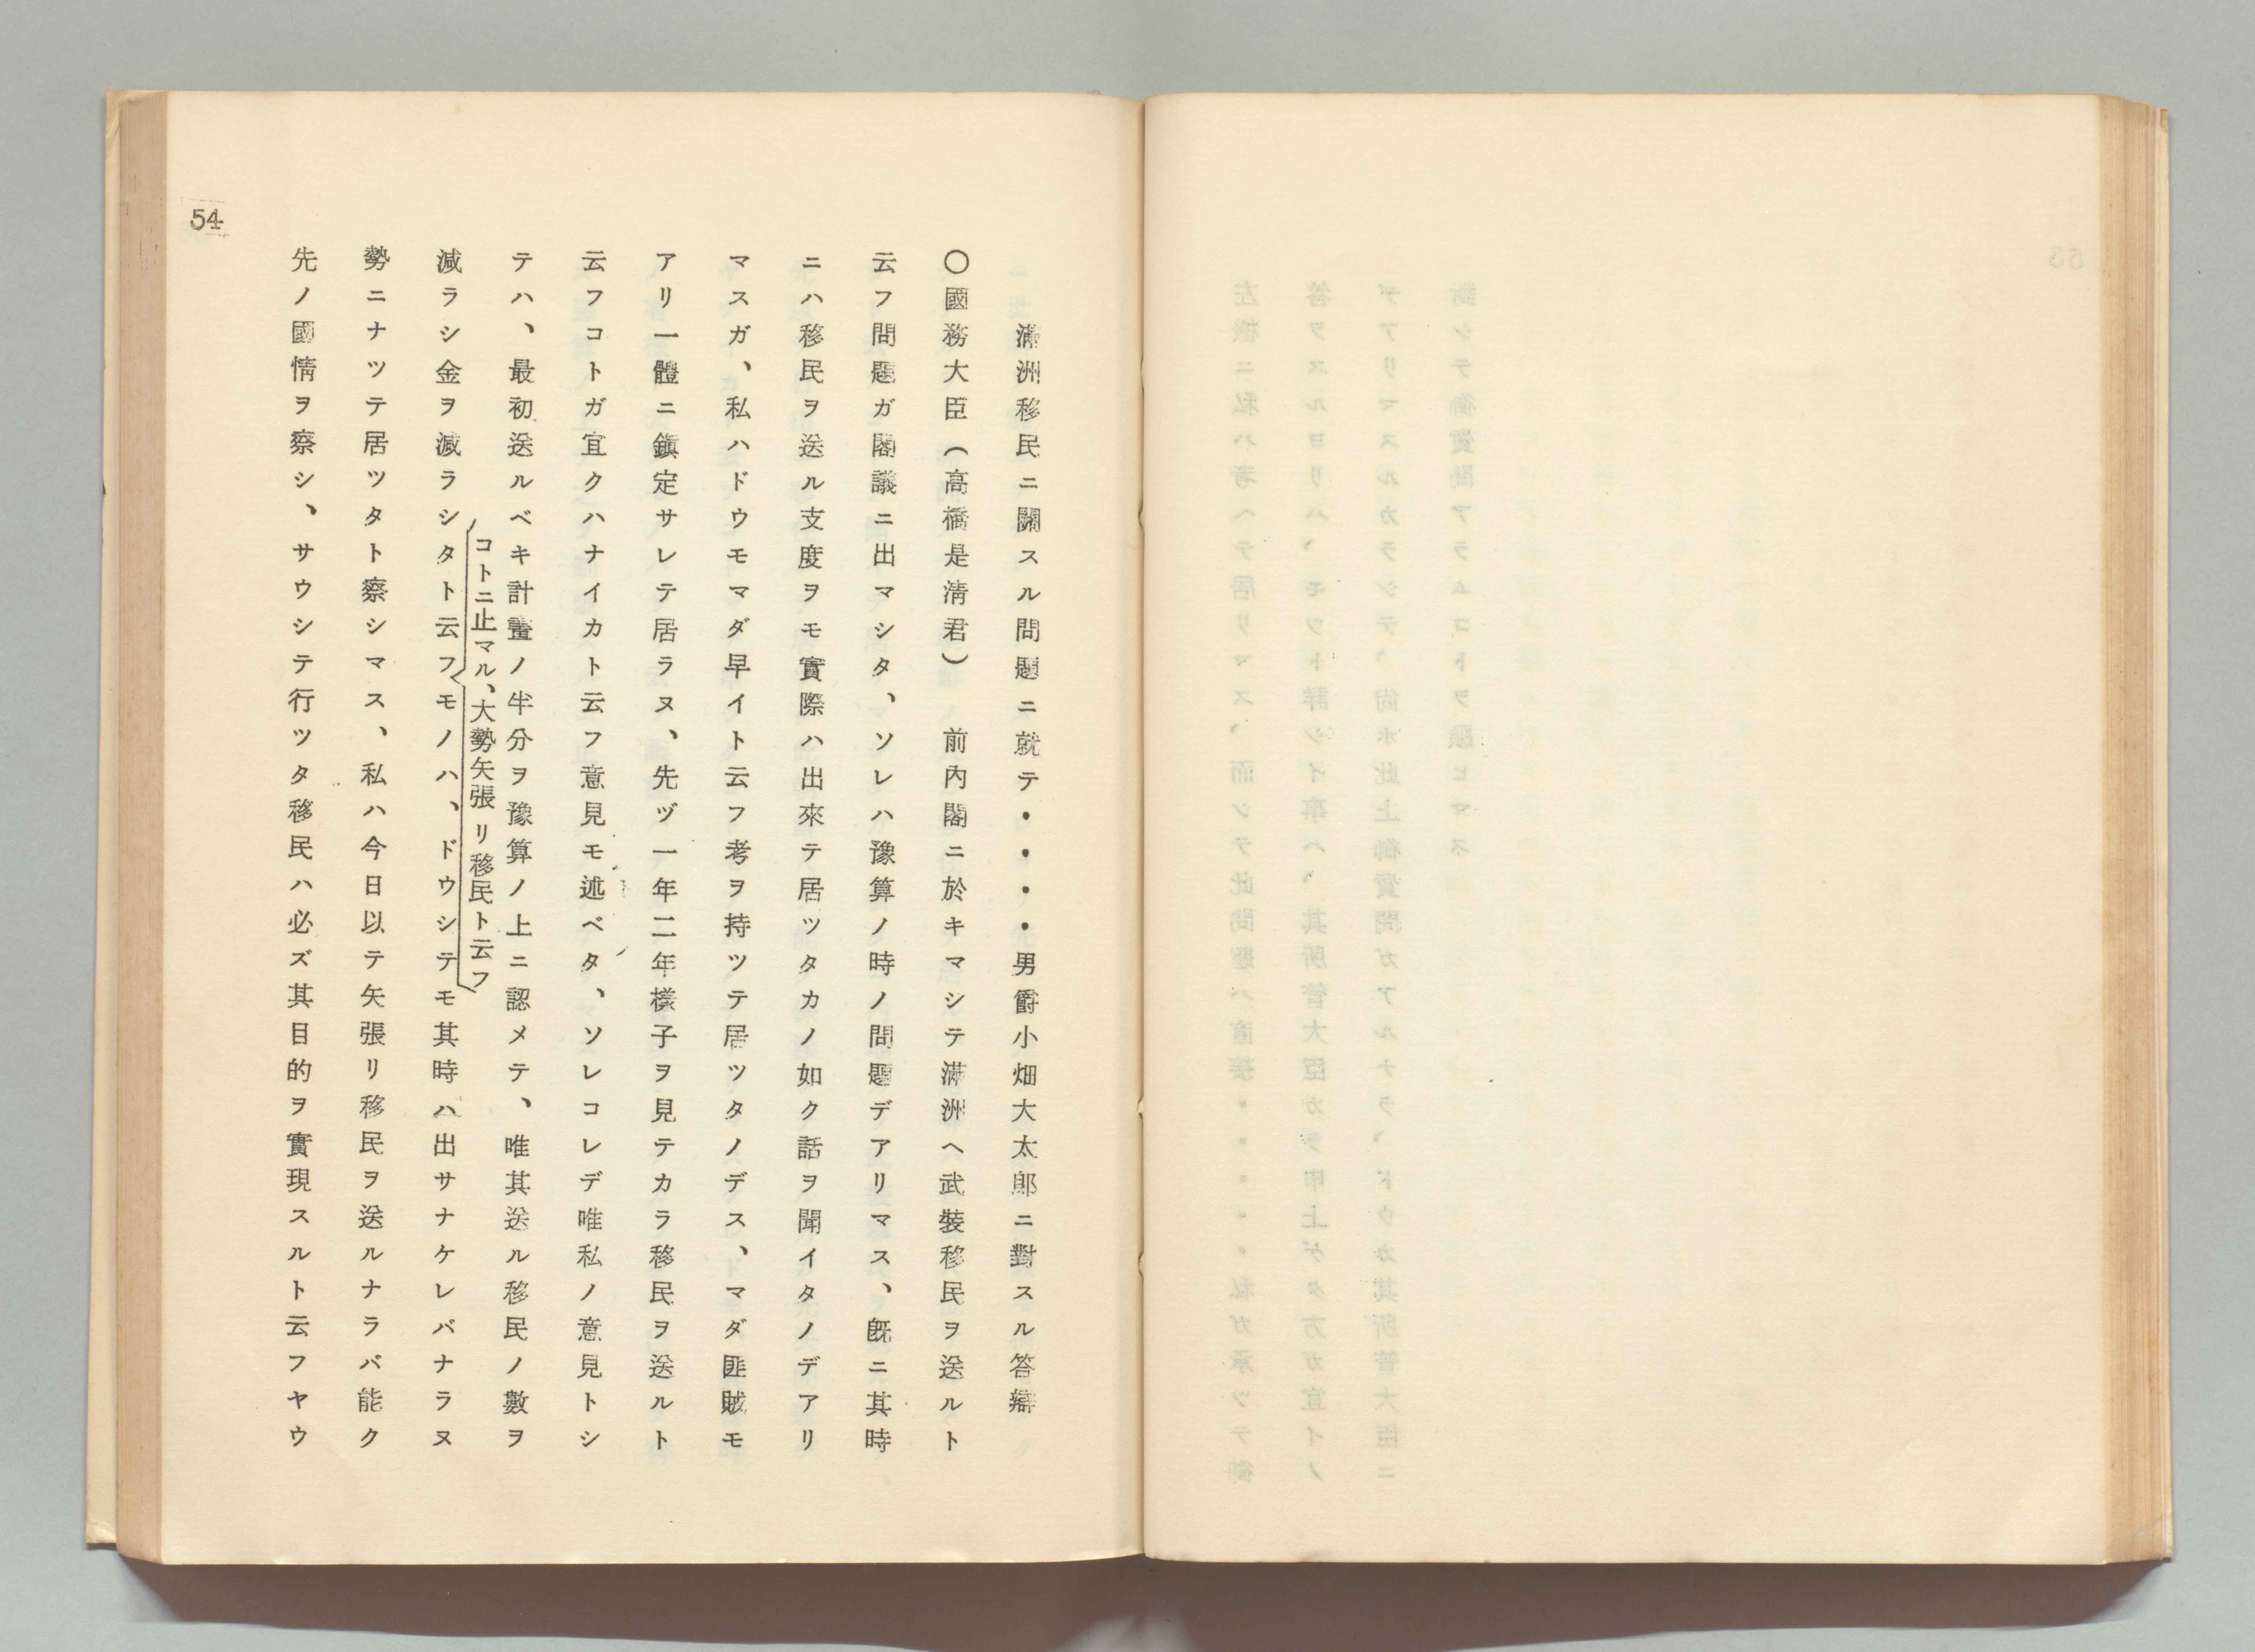 滿洲移民ニ關スル問題ニ就テ・・・・男爵小畑大太郎ニ對スル答辯
〇國務大臣(高橋是淸君) 前內閣ニ於キマシテ滿洲ヘ武裝移民ヲ送ルト
云フ問題ガ閣議ニ出マシタ、ソレハ豫算ノ時ノ問題デアリマス、旣ニ其時
ニハ移民ヲ送ル支度ヲモ實際ハ出來テ居ツタカノ如ク話ヲ聞イタノデアリ
マスガ、私ハドウモマダ早イト云フ考ヲ持ツテ居ツタノデス、マダ匪賊モ
アリ一體ニ鎭定サレテ居ラヌ、先ヅ一年二年樣子ヲ見テカラ移民ヲ送ルト
云フコトガ宜クハナイカト云フ意見モ述ベタ、ソレコレデ唯私ノ意見トシ
テハ、最初送ルベキ計畫ノ半分ヲ豫算ノ上ニ認メテ、唯其送ル移民ノ數ヲ
コトニ止マル、大勢矢張リ移民ト云フ
減ラシ金ヲ減ラシタト云フモノハ、ドウシテモ其時ハ出サナケレバナラヌ
勢ニナツテ居ツタト察シマス、私ハ今日以テ矢張リ移民ヲ送ルナラバ能ク
先ノ國情ヲ察シ、サウシテ行ツタ移民ハ必ズ其目的ヲ實現スルト云フヤウ
54